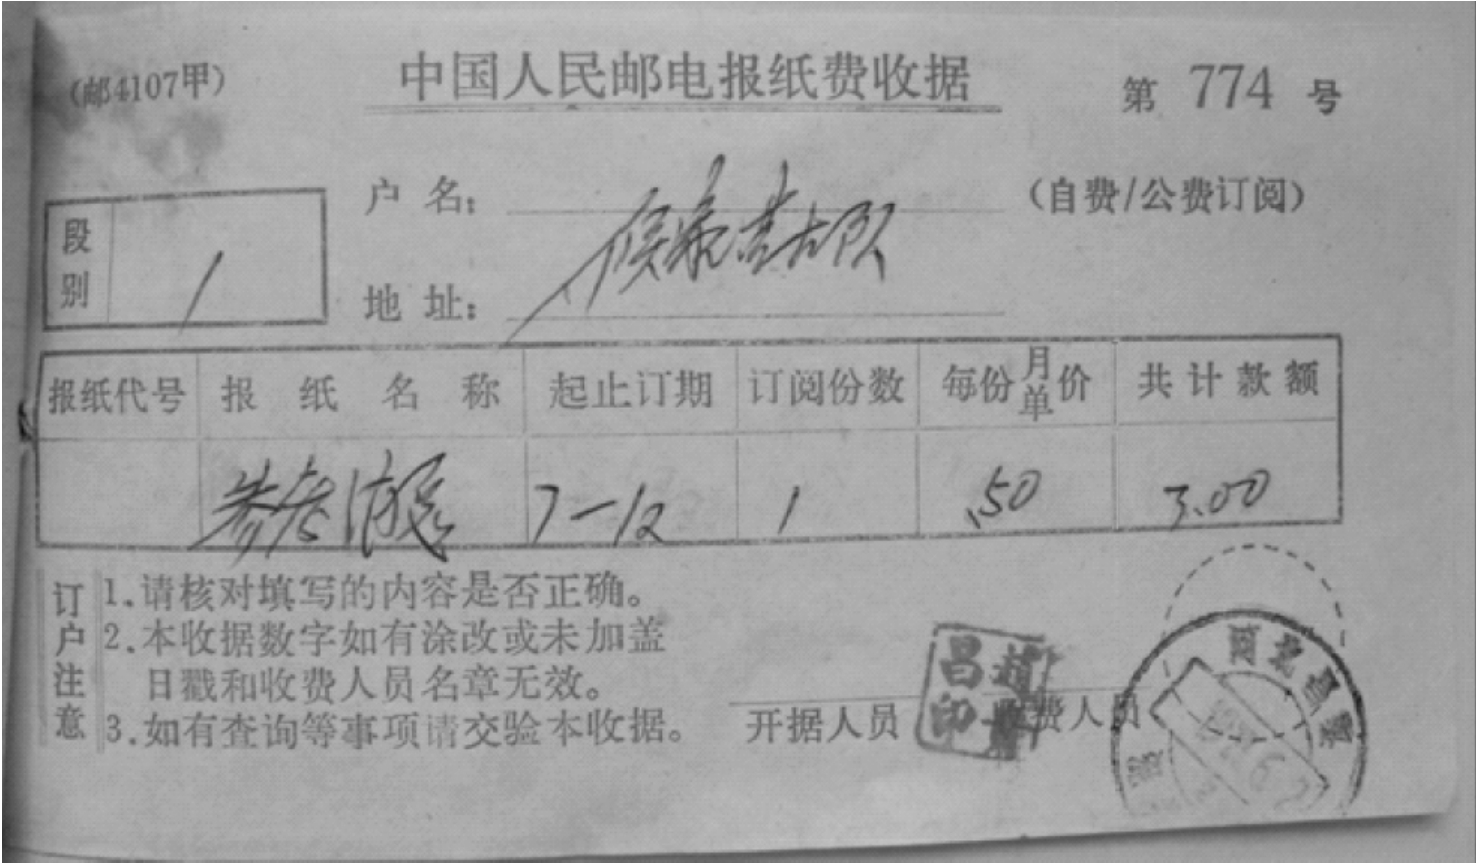 (邮4107甲)
中国人民邮电报纸费收据
第 774 号
户名:
(自费/公费订阅)
段别 1
地址:
报纸代号 报纸名称 起止订期 订阅份数 每份月单价 共计款额
参考消息 7-12 1 .50 3.00
订户注意
1.请核对填写的内容是否正确。
2.本收据数字如有涂改或未加盖
日戳和收费人员名章无效。
3.如有查询等事项请交验本收据。
开据人员
收费人员